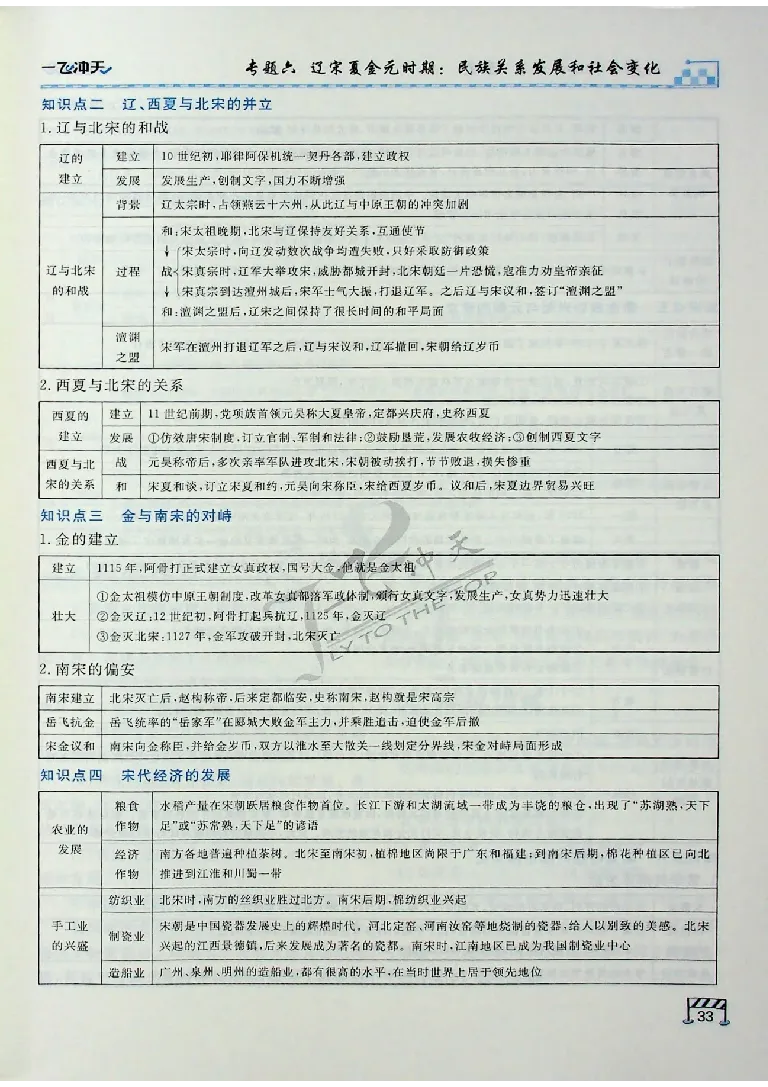 一飞冲天
专题六 辽宋夏金元时期：民族关系发展和社会变化
知识点二 辽、西夏与北宋的并立
1.辽与北宋的和战
辽的建立
建立 10世纪初,耶律阿保机统一契丹各部,建立政权
发展 发展生产,创制文字,国力不断增强
辽与北宋的和战
背景 辽太宗时,占领燕云十六州,从此辽与中原王朝的冲突加剧
过程
和:宋太祖晚期,北宋与辽保持友好关系,互通使节
↓
战
宋太宗时,向辽发动数次战争均遭失败,只好采取防御政策
宋真宗时,辽军大举攻宋,威胁都城开封,北宋朝廷一片恐慌,寇准力劝皇帝亲征
↓
宋真宗到达澶州城后,宋军士气大振,打退辽军。之后辽与宋议和,签订“澶渊之盟”
和:澶渊之盟后,辽宋之间保持了很长时间的和平局面
澶渊之盟 宋军在澶州打退辽军之后,辽与宋议和,辽军撤回,宋朝给辽岁币
2.西夏与北宋的关系
西夏的建立
建立 11世纪前期,党项族首领元昊称大夏皇帝,定都兴庆府,史称西夏
发展 ①仿效唐宋制度,订立官制、军制和法律;②鼓励垦荒,发展农牧经济;③创制西夏文字
西夏与北宋的关系
战 元昊称帝后,多次亲率军队进攻北宋,宋朝被动挨打,节节败退,损失惨重
和 宋夏和谈,订立宋夏和约,元昊向宋称臣,宋给西夏岁币。议和后,宋夏边界贸易兴旺
知识点三 金与南宋的对峙
1.金的建立
建立 1115年,阿骨打正式建立女真政权,国号大金,他就是金太祖
壮大
①金太祖模仿中原王朝制度,改革女真部落军政体制,颁行女真文字,发展生产,女真势力迅速壮大
②金灭辽:12世纪初,阿骨打起兵抗辽,1125年,金灭辽
③金灭北宋:1127年,金军攻破开封,北宋灭亡
飞冲天
FLY TO THE TOP
2.南宋的偏安
南宋建立 北宋灭亡后,赵构称帝,后来定都临安,史称南宋,赵构就是宋高宗
岳飞抗金 岳飞统率的“岳家军”在郾城大败金军主力,并乘胜追击,迫使金军后撤
宋金议和 南宋向金称臣,并给金岁币,双方以淮水至大散关一线划定分界线,宋金对峙局面形成
知识点四 宋代经济的发展
农业的发展
粮食作物 水稻产量在宋朝跃居粮食作物首位。长江下游和太湖流域一带成为丰饶的粮仓,出现了“苏湖熟,天下
足”或“苏常熟,天下足”的谚语
经济作物 南方各地普遍种植茶树。北宋至南宋初,植棉地区尚限于广东和福建;到南宋后期,棉花种植区已向北
推进到江淮和川蜀一带
手工业的兴盛
纺织业 北宋时,南方的丝织业胜过北方。南宋后期,棉纺织业兴起
制瓷业 宋朝是中国瓷器发展史上的辉煌时代。河北定窑、河南汝窑等地烧制的瓷器,给人以别致的美感。北宋
兴起的江西景德镇,后来发展成为著名的瓷都。南宋时,江南地区已成为我国制瓷业中心
造船业 广州、泉州、明州的造船业,都有很高的水平,在当时世界上居于领先地位
33